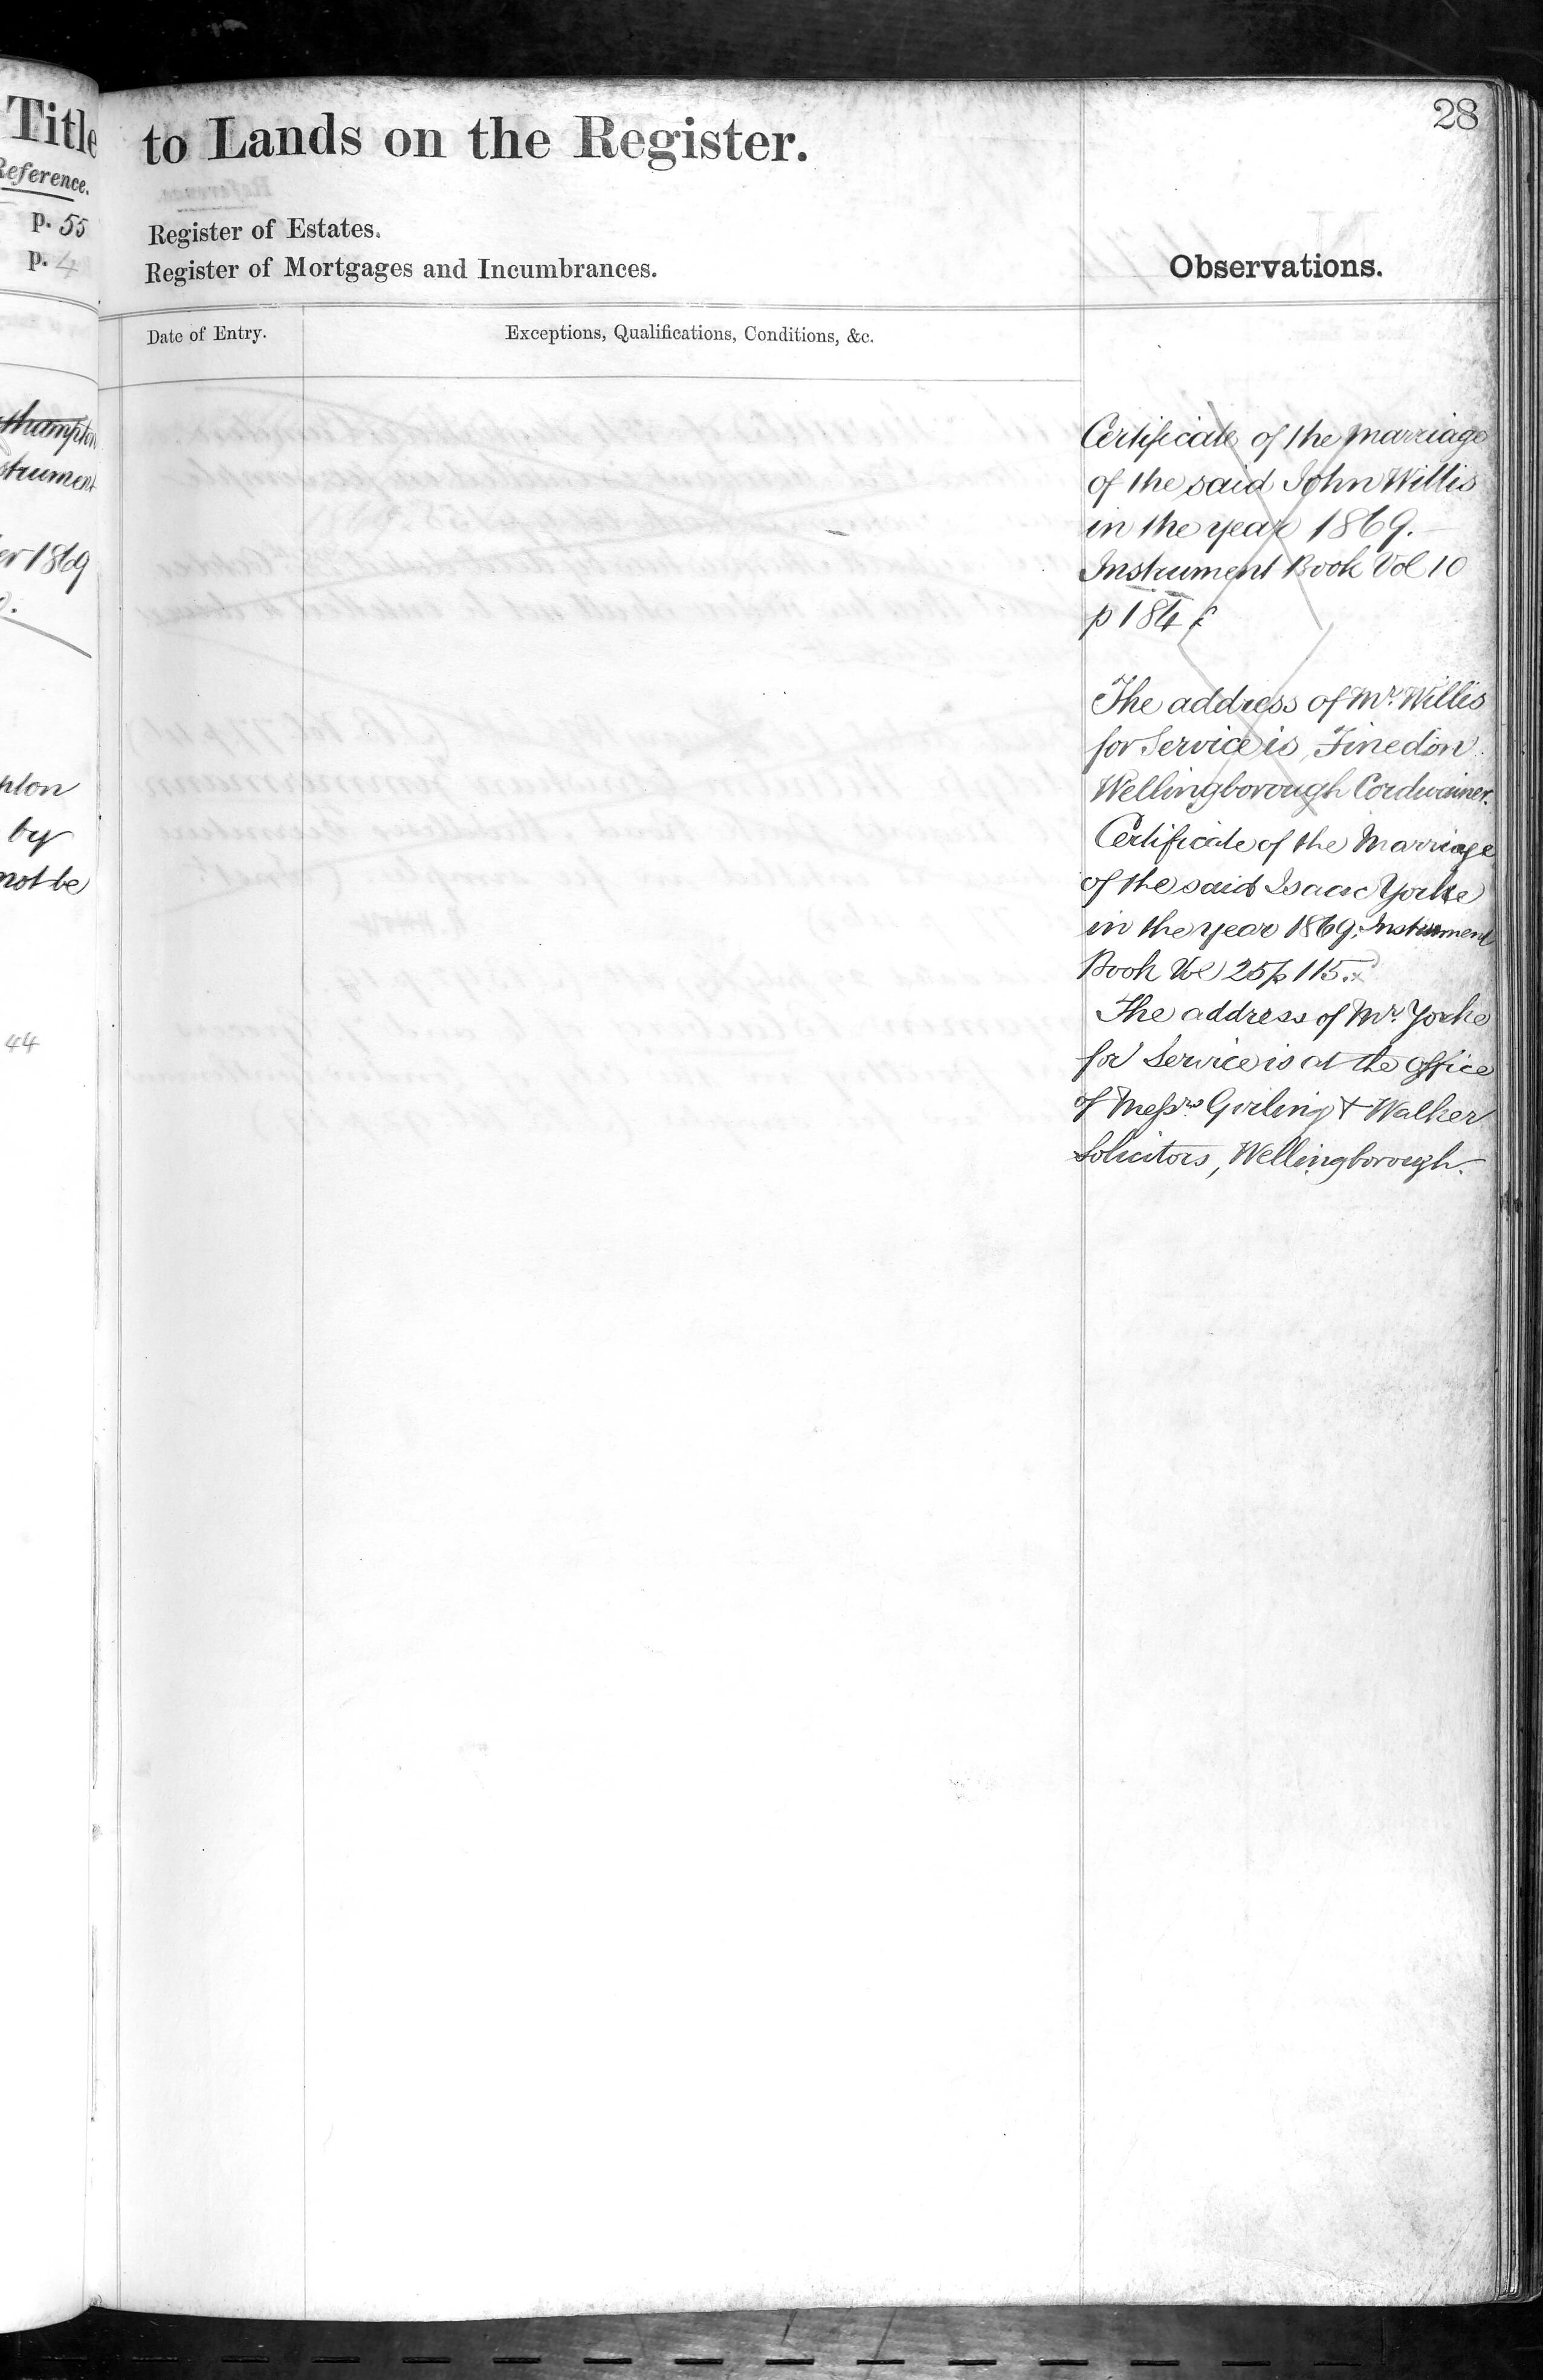 Title
Reference.
p. 55
p. 4
thampton
strument
er 1869
pton
by
not be
44
28
to Lands on the Register.
Register of Estates.
Register of Mortgages and Incumbrances.
Observations.
Date of Entry.
Exceptions, Qualifications, Conditions, &c.
Certificate of the Marriage
of the said John Willis
in the year 1869.
Instrument Book Vol 10
p 184
The address of Mr. Willis
for Service is, Finedon
Wellingborough Cordwainer.
Certificate of the Marriage
of the said Isaac Yorke
in the year 1869. Instrument
Book Vol 25 p 115.
The address of Mr. Yorke
for Service is at the office
of Messrs. Girling & Walker
Solicitors, Wellingborough.